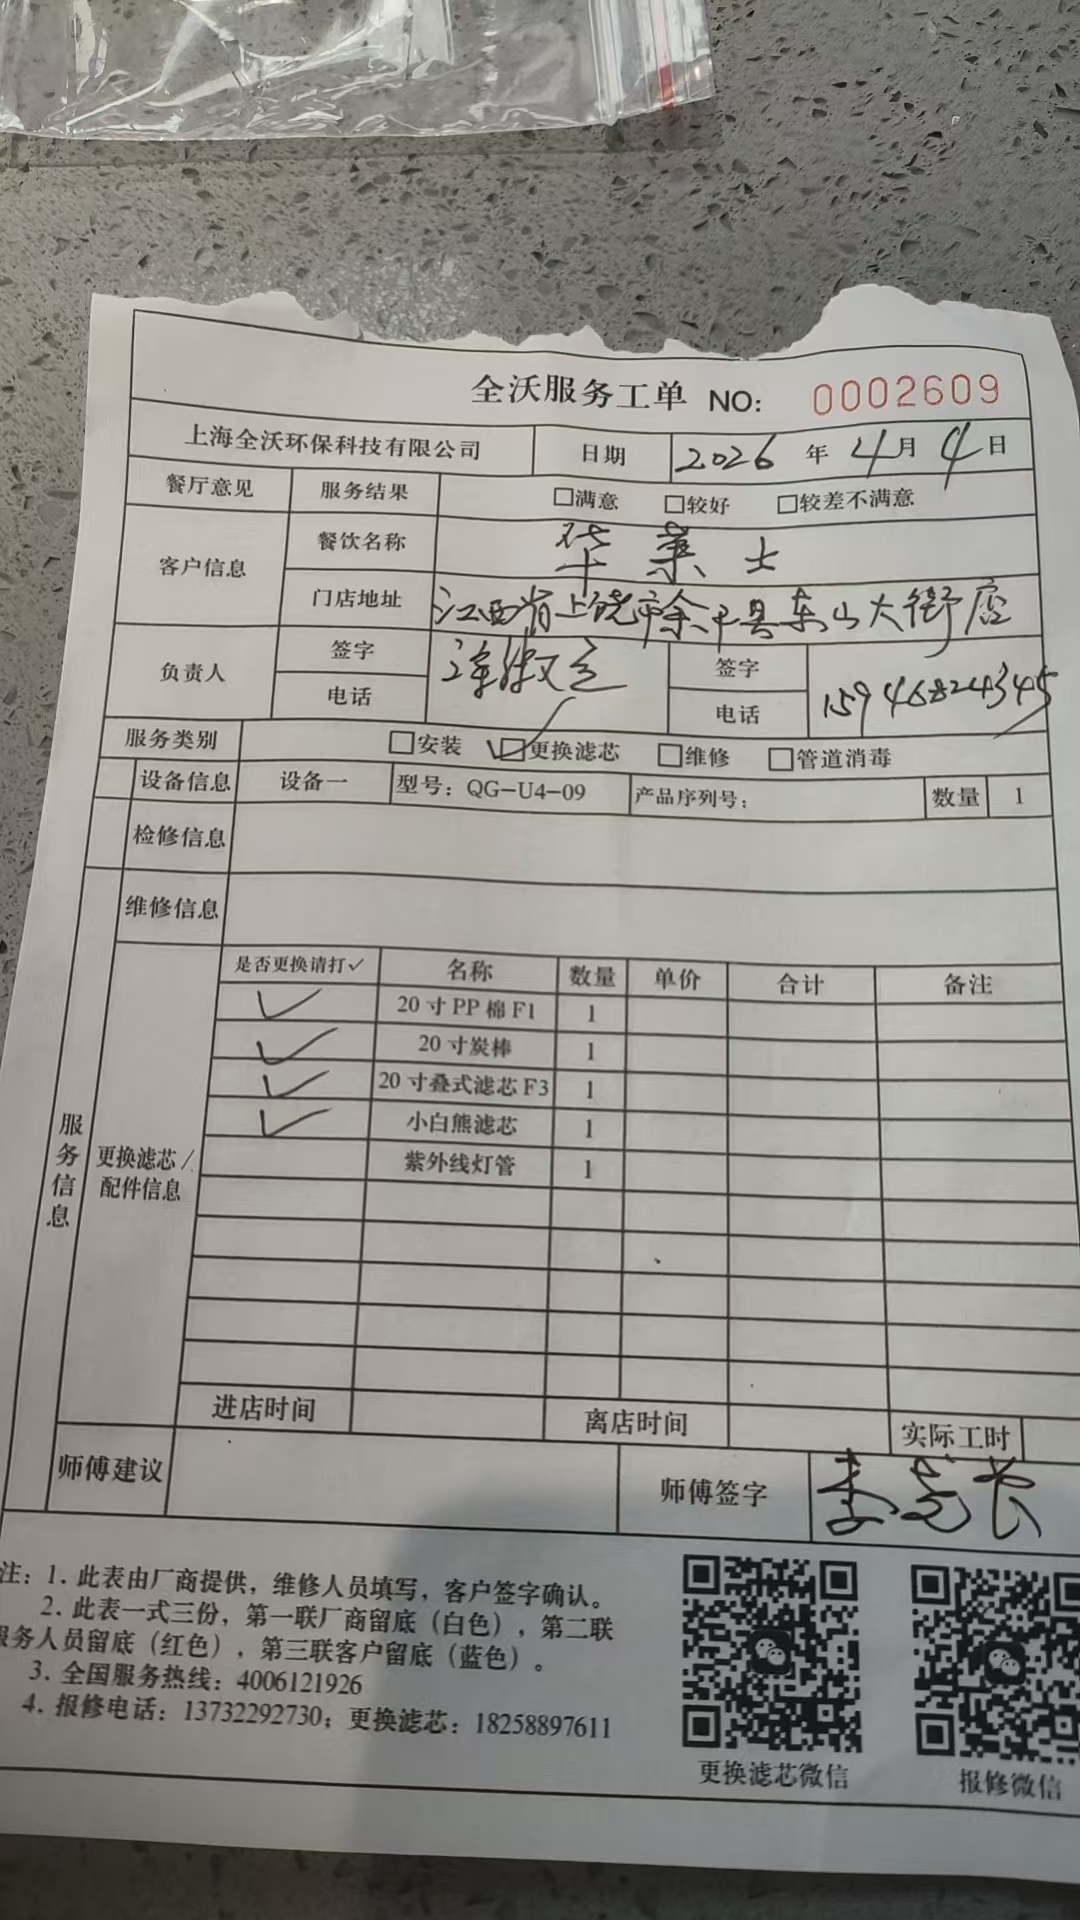 全沃服务工单 NO: 0002609
上海全沃环保科技有限公司 日期 2026 年 4月 4日
餐厅意见 服务结果 □满意 □较好 □较差不满意
客户信息 餐饮名称 华莱士
门店地址 江西省上饶市余干县东山大街店
负责人 签字 签字
电话 电话 15946824345
服务类别 □安装 ✓□更换滤芯 □维修 □管道消毒
设备信息 设备一 型号：QG-U4-09 产品序列号： 数量 1
检修信息
维修信息
服务信息
更换滤芯/
配件信息
是否更换请打✓ 名称 数量 单价 合计 备注
✓ 20寸PP棉F1 1
✓ 20寸炭棒 1
✓ 20寸叠式滤芯F3 1
✓ 小白熊滤芯 1
紫外线灯管 1
进店时间 离店时间 实际工时
师傅建议 师傅签字
注：1. 此表由厂商提供，维修人员填写，客户签字确认。
2. 此表一式三份，第一联厂商留底（白色），第二联
服务人员留底（红色），第三联客户留底（蓝色）。
3. 全国服务热线：4006121926
4. 报修电话：13732292730；更换滤芯：18258897611
更换滤芯微信 报修微信